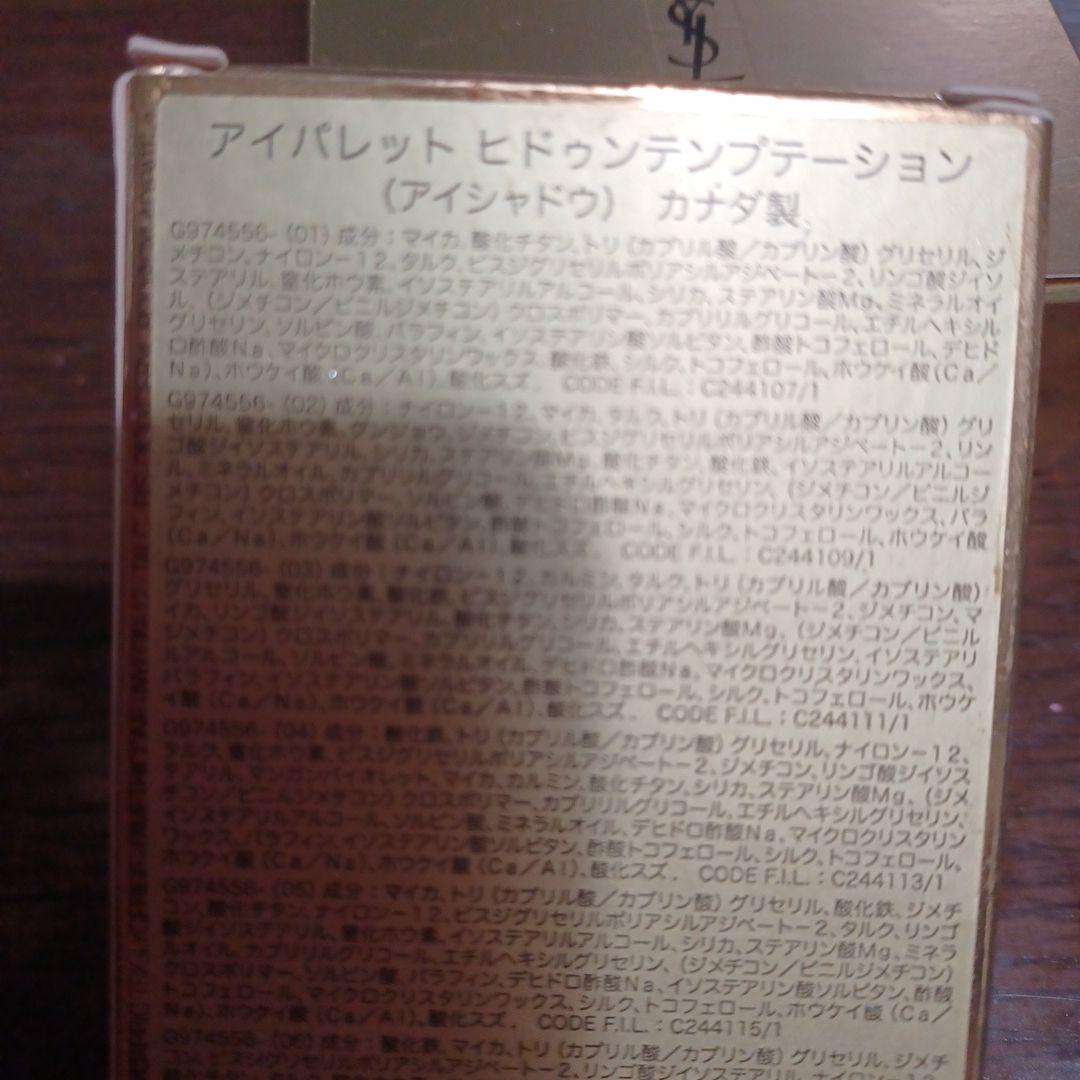 YSL
アイパレット ヒドゥンテンプテーション
(アイシャドウ) カナダ製
G974556- (01) 成分：マイカ、酸化チタン、トリ (カプリル酸／カプリン酸) グリセリル、ジ
メチコン、ナイロン－12、タルク、ビスジグリセリルポリアシルアジペート－2、リンゴ酸ジイソ
ステアリル、窒化ホウ素、イソステアリルアルコール、シリカ、ステアリン酸Mg、ミネラルオイ
ル、(ジメチコン／ビニルジメチコン) クロスポリマー、カプリリルグリコール、エチルヘキシル
グリセリン、ソルビン酸、パラフィン、イソステアリン酸ソルビタン、酢酸トコフェロール、デヒド
ロ酢酸Na、マイクロクリスタリンワックス、酸化鉄、シルク、トコフェロール、ホウケイ酸(Ca／
Na)、ホウケイ酸 (Ca／Al)、酸化スズ． CODE F.I.L.：C244107/1
G974556- (02) 成分：ナイロン－12、マイカ、タルク、トリ (カプリル酸／カプリン酸) グリ
セリル、窒化ホウ素、グンジョウ、ジメチコン、ビスジグリセリルポリアシルアジペート－2、リン
ゴ酸ジイソステアリル、シリカ、ステアリン酸Mg、酸化チタン、酸化鉄、イソステアリルアルコー
ル、ミネラルオイル、カプリリルグリコール、エチルヘキシルグリセリン、(ジメチコン／ビニルジ
メチコン) クロスポリマー、ソルビン酸、デヒドロ酢酸Na、マイクロクリスタリンワックス、パラ
フィン、イソステアリン酸ソルビタン、酢酸トコフェロール、シルク、トコフェロール、ホウケイ酸
(Ca／Na)、ホウケイ酸 (Ca／Al)、酸化スズ． CODE F.I.L.：C244109/1
G974556- (03) 成分：ナイロン－12、カルミン、タルク、トリ (カプリル酸／カプリン酸)
グリセリル、窒化ホウ素、酸化鉄、ビスジグリセリルポリアシルアジペート－2、ジメチコン、マ
イカ、リンゴ酸ジイソステアリル、酸化チタン、シリカ、ステアリン酸Mg、(ジメチコン／ビニル
ジメチコン) クロスポリマー、カプリリルグリコール、エチルヘキシルグリセリン、イソステアリ
ルアルコール、ソルビン酸、ミネラルオイル、デヒドロ酢酸Na、マイクロクリスタリンワックス、
パラフィン、イソステアリン酸ソルビタン、酢酸トコフェロール、シルク、トコフェロール、ホウケ
イ酸 (Ca／Na)、ホウケイ酸 (Ca／Al)、酸化スズ． CODE F.I.L.：C244111/1
G974556- (04) 成分：酸化鉄、トリ (カプリル酸／カプリン酸) グリセリル、ナイロン－12、
タルク、窒化ホウ素、ビスジグリセリルポリアシルアジペート－2、ジメチコン、リンゴ酸ジイソス
テアリル、マンガンバイオレット、マイカ、カルミン、酸化チタン、シリカ、ステアリン酸Mg、(ジメ
チコン／ビニルジメチコン) クロスポリマー、カプリリルグリコール、エチルヘキシルグリセリン、
イソステアリルアルコール、ソルビン酸、ミネラルオイル、デヒドロ酢酸Na、マイクロクリスタリン
ワックス、パラフィン、イソステアリン酸ソルビタン、酢酸トコフェロール、シルク、トコフェロール、
ホウケイ酸 (Ca／Na)、ホウケイ酸 (Ca／Al)、酸化スズ． CODE F.I.L.：C244113/1
G974556- (05) 成分：マイカ、トリ (カプリル酸／カプリン酸) グリセリル、酸化鉄、ジメチ
コン、酸化チタン、ナイロン－12、ビスジグリセリルポリアシルアジペート－2、タルク、リンゴ
酸ジイソステアリル、窒化ホウ素、イソステアリルアルコール、シリカ、ステアリン酸Mg、ミネラ
ルオイル、カプリリルグリコール、エチルヘキシルグリセリン、(ジメチコン／ビニルジメチコン)
クロスポリマー、ソルビン酸、パラフィン、デヒドロ酢酸Na、イソステアリン酸ソルビタン、酢酸
トコフェロール、マイクロクリスタリンワックス、シルク、トコフェロール、ホウケイ酸 (Ca／
Na)、ホウケイ酸 (Ca／Al)、酸化スズ． CODE F.I.L.：C244115/1
G974556- (06) 成分：酸化鉄、マイカ、トリ (カプリル酸／カプリン酸) グリセリル、ジメチ
コン、ビスジグリセリルポリアシルアジペート－2、リンゴ酸ジイソステアリル、ナイロン－12